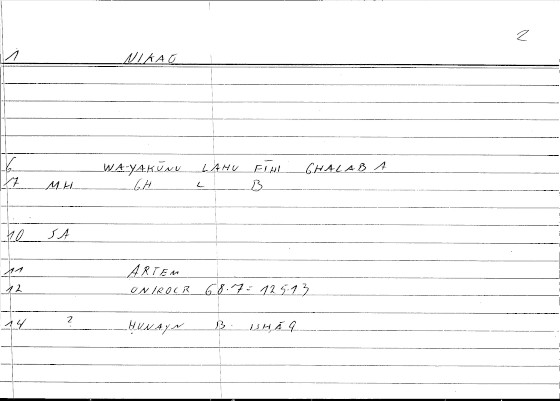 2
1 NIKAŌ
6 WA-YAKŪNU LAHU FĪHI GHALABA
7 MH GH L B
10 SA
11 ARTEM
12 ONIROCR 68.7 = 125.13
14 ? ḤUNAYN B. ISḤĀQ